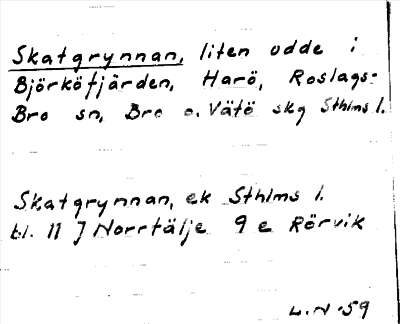 Skatgrynnan, liten udde i
Björköfjärden, Harö, Roslags-
Bro sn, Bro o. Vätö skg Sthlms l.
Skatgrynnan, ek Sthlms l.
bl. 11 J Norrtälje 9 e Rörvik
L.N -59